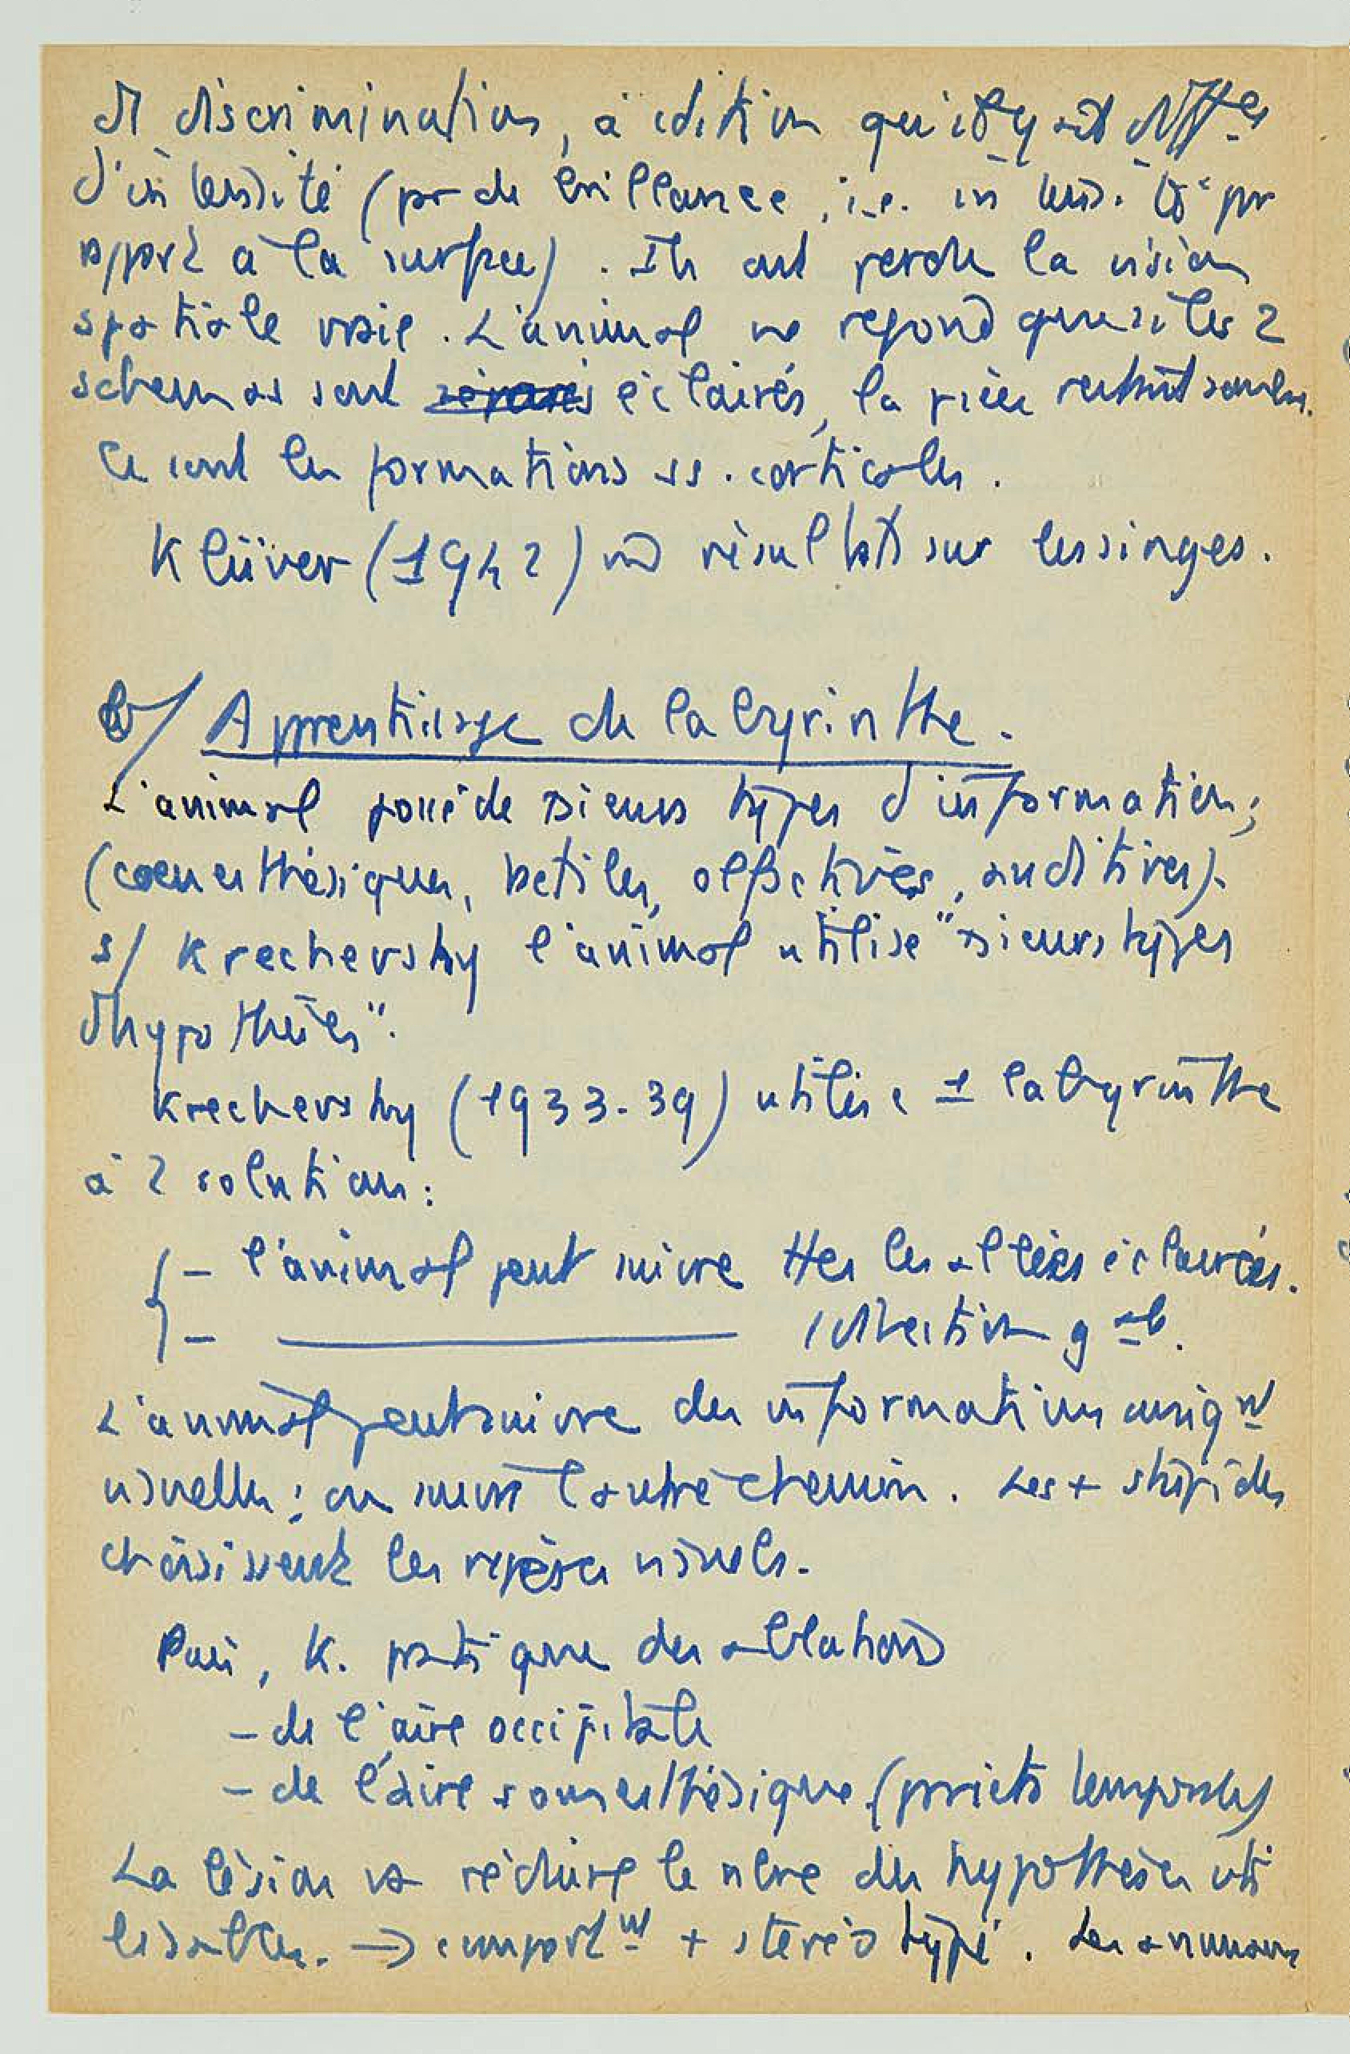 d discrimination, à cdition qu'il y ait Δff^ces
d'intensité (pr de brillance, i.e. intensité par
rapport à la surface). Ils ont perdu la vision
spatiale vraie. L'animal ne répond que si les 2
schemas sont séparés éclairés, la pièce restant sombre.
Ce sont les formations ss. corticales.
Klüver (1942) m̂ résultats sur les singes.
b/ Apprentissage de labyrinthe.
L'animal possède psieurs types d'information;
(coenesthésiques, tactiles, olfactives, auditives).
s/ Krechevsky l'animal utilise "psieurs types
d'hypothèses".
Krechevsky (1933-39) utilise 1 labyrinthe
à 2 solutions:
- l'animal peut suivre ttes les allées éclairées.
- ———— 1 direction g^ale.
L'animal peut suivre des informations uniq^nt
visuelles; ou suivre l'autre chemin. Les + stupides
choisissent les repères visuels.
Puis, K. pratique des ablations
- de l'aire occipitale
- de l'aire somesthésique (pariéto temporale)
La lésion va réduire le nbre des hypothèses uti
lisables. → comport^nt + stéréotypé. Les animaux